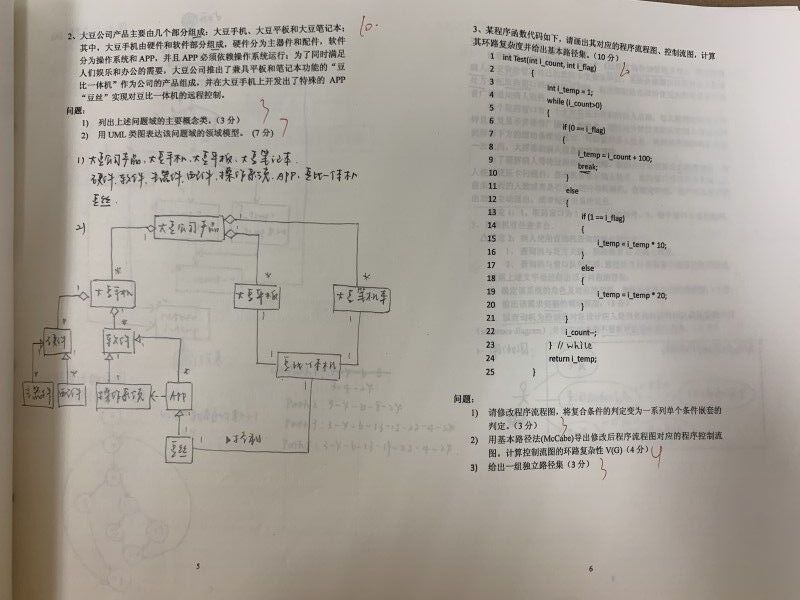 2、大豆公司产品主要由几个部分组成：大豆手机、大豆平板和大豆笔记本；
其中，大豆手机由硬件和软件部分组成，硬件分为主器件和配件，软件
分为操作系统和APP，并且 APP 必须依赖操作系统运行；为了同时满足
人们娱乐和办公的需要，大豆公司推出了兼具平板和笔记本功能的“豆
比一体机”作为公司的产品组成，并在大豆手机上开发了特殊的 APP
“豆丝”实现对豆比一体机的远程控制。
10.
问题：
1) 列出上述问题域的主要概念类。（3 分）
3
2) 用 UML 类图表达该问题域的领域模型。（7 分）
7
1) 大豆公司产品、大豆手机、大豆平板、大豆笔记本
硬件、软件、主器件、配件、操作系统、APP、豆比一体机
豆丝
2)
大豆公司产品
大豆手机
大豆平板
大豆笔记本
硬件
软件
豆比一体机
主器件
配件
操作系统
APP
豆丝
5
3、某程序函数代码如下，请画出其对应的程序流程图、控制流图，计算
其环路复杂度并给出基本路径集。（10 分）
1 int Test(int i_count, int i_flag)
2 {
3 int i_temp = 1;
4 while (i_count>0)
5 {
6 if (0 == i_flag)
7 {
8 i_temp = i_count + 100;
9 break;
10 }
11 else
12 {
13 if (1 == i_flag)
14 {
15 i_temp = i_temp * 10;
16 }
17 else
18 {
19 i_temp = i_temp * 20;
20 }
21 }
22 i_count--;
23 } // while
24 return i_temp;
25 }
问题：
1) 请修改程序流程图，将复合条件的判定变为一系列单个条件嵌套的
判定。（3 分）
3
2) 用基本路径法(McCabe)导出修改后程序流程图对应的程序控制流
图。计算控制流图的环路复杂性 V(G)（4 分）
4
3) 给出一组独立路径集（3 分）
3
6